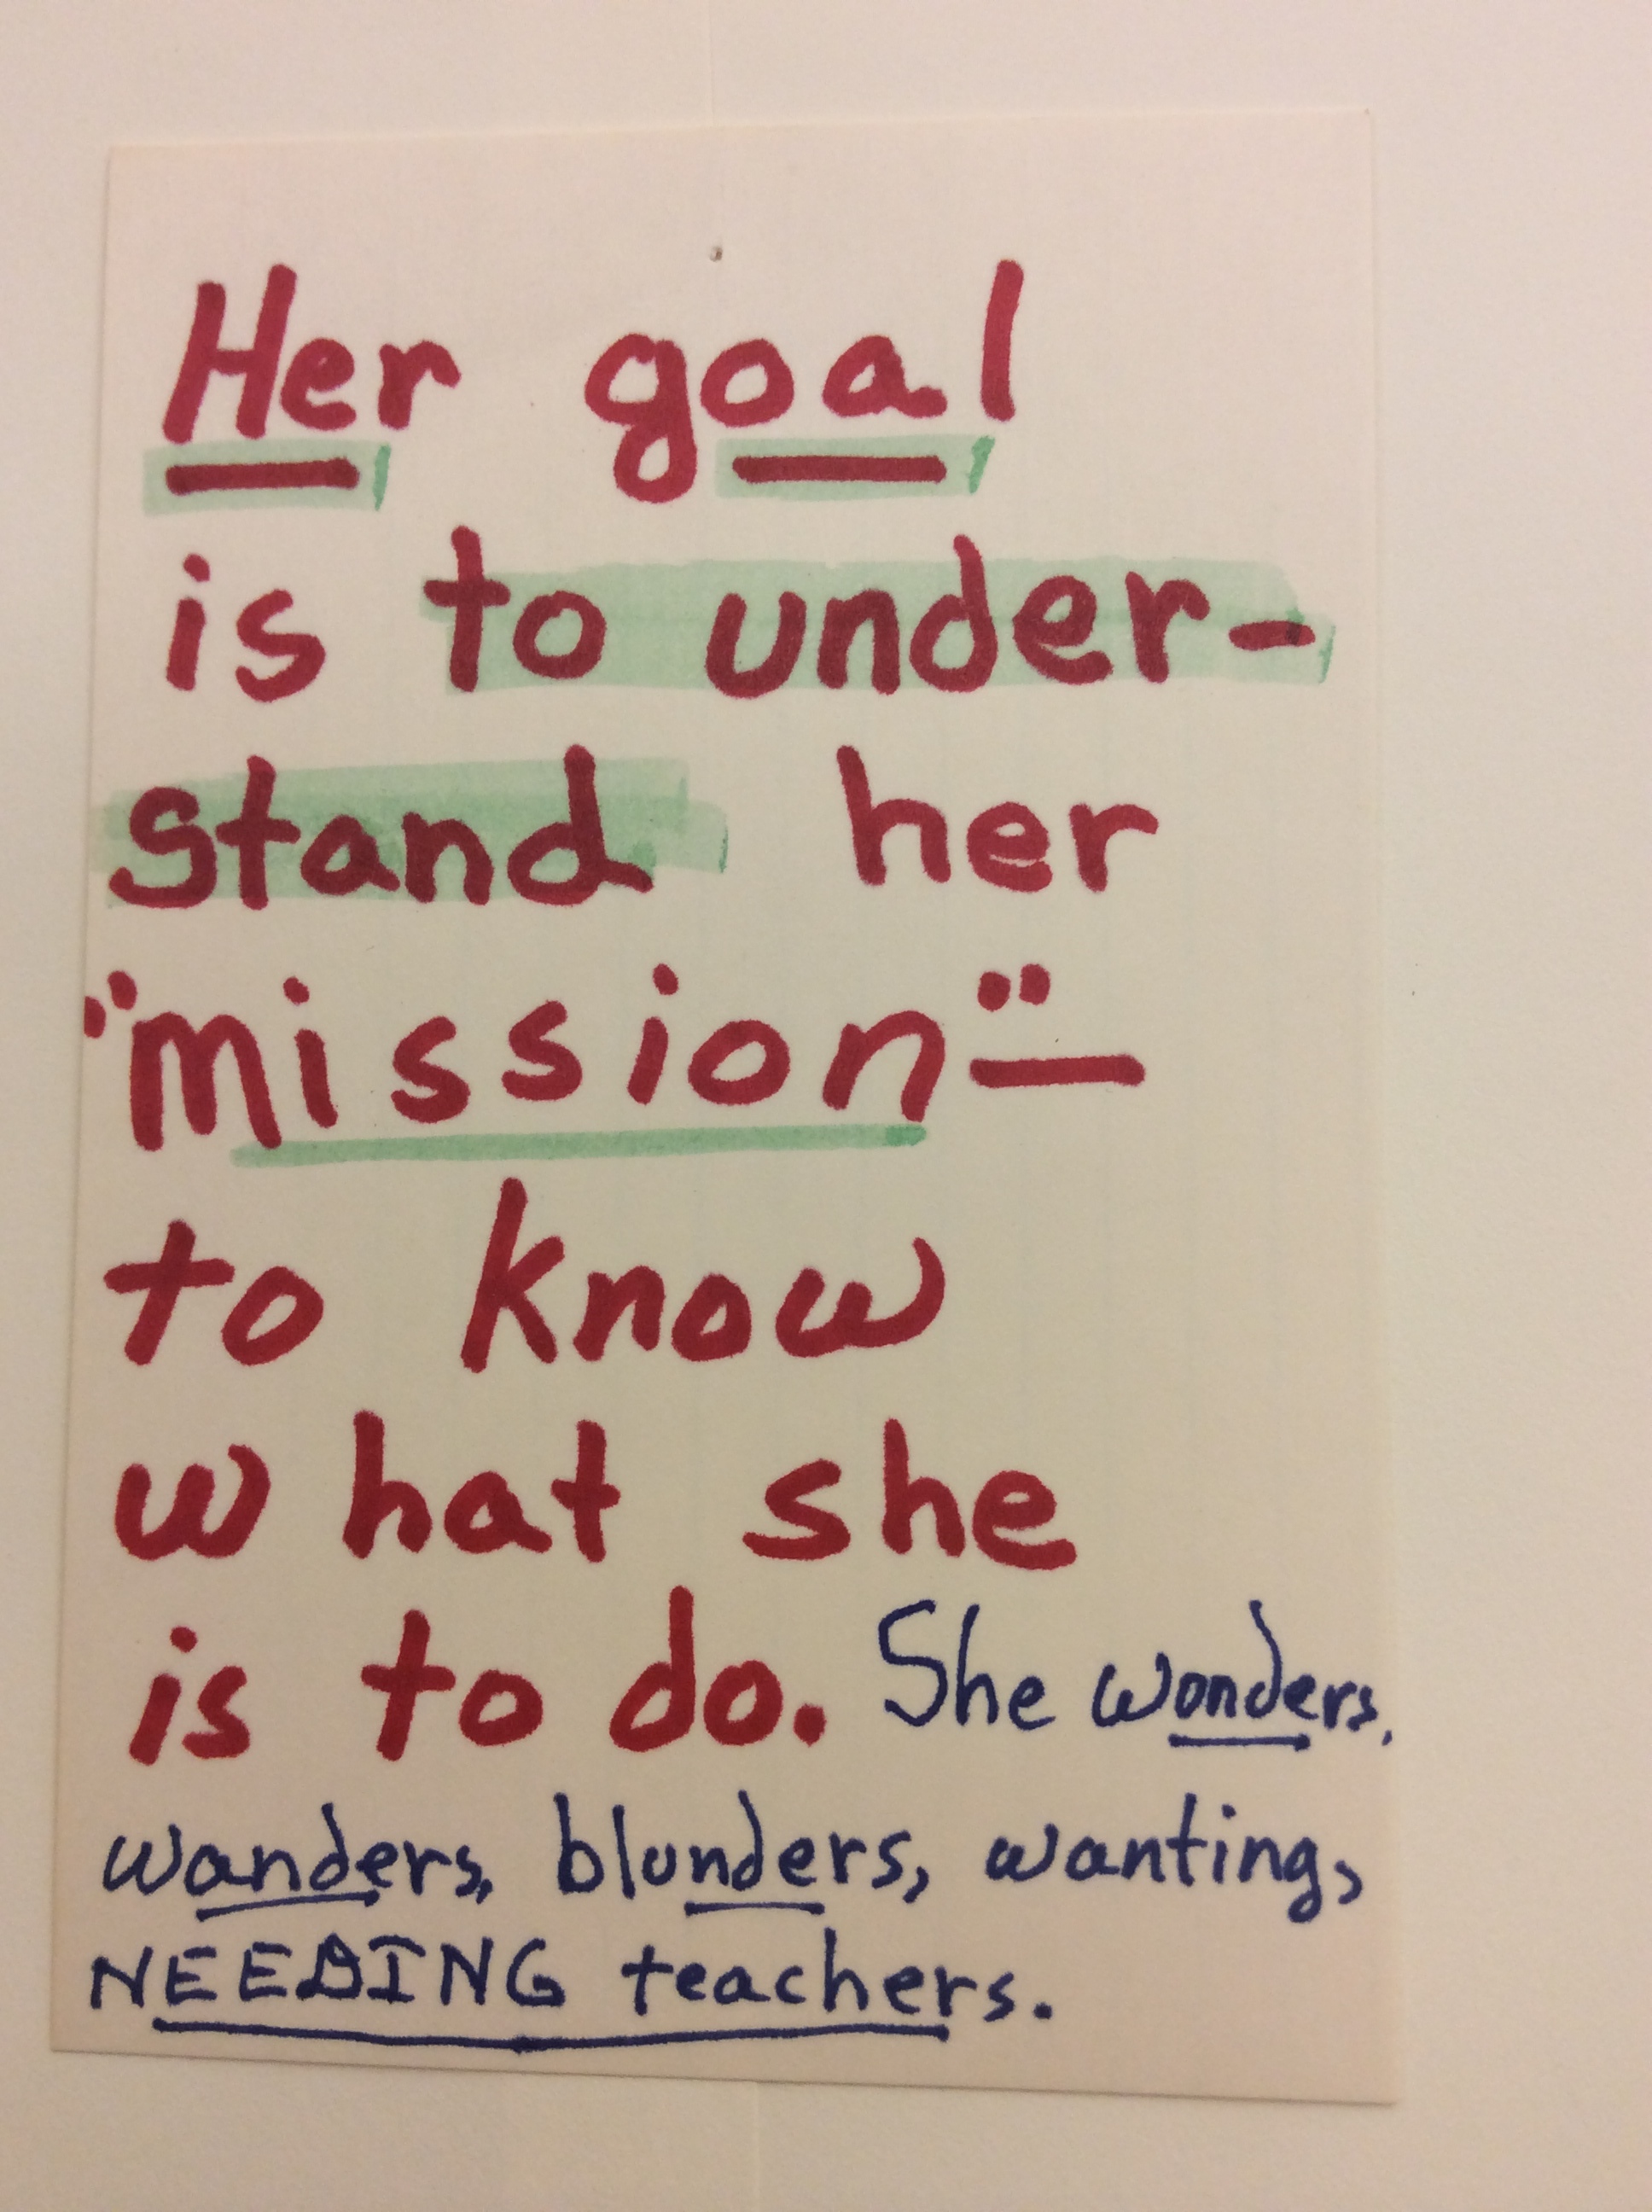 Her goal
is to under-
stand her
"mission"—
to know
what she
is to do. She wonders,
wanders, blunders, wanting,
NEEDING teachers.